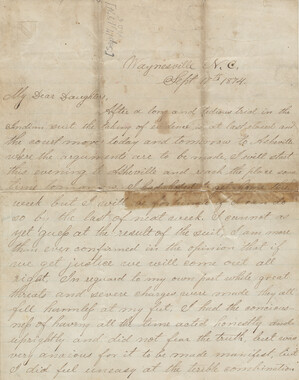 Waynesville N. C.
Sept 17th 1874.
My Dear Daughter,
After a long and tedious trial in the
Indian suit the taking of evidence is at last closed and
the court moves today and tomorrow to Asheville
where the arguments are to be made, I will start
this evening to Asheville and reach the place some
time
week but it will be
so by the last of next week. I cannot as
yet guess at the result of the suit. I am more
than ever confirmed in the opinion that if
we get justice we will come out all
right. In regard to my own part while great
threats and severe charges were made they all
fell harmless at my feet. I had the conscious-
ness of having all the time acted honestly and
uprightly and did not fear the truth, but was
very anxious for it to be made manifest, but
I did feel uneasy at the terrible combination